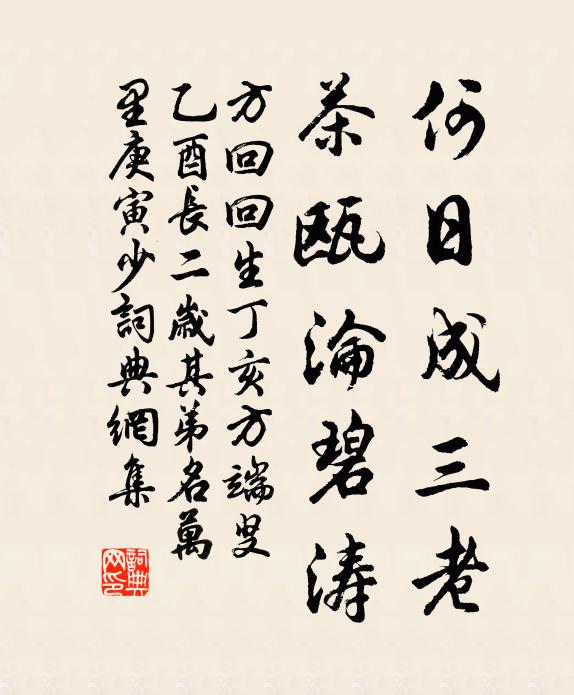 何日成三老
茶瓯瀹碧涛
方回回生丁亥方端叟
乙酉長二歲其弟名萬
里庚寅少詞典網集
詞典
网印